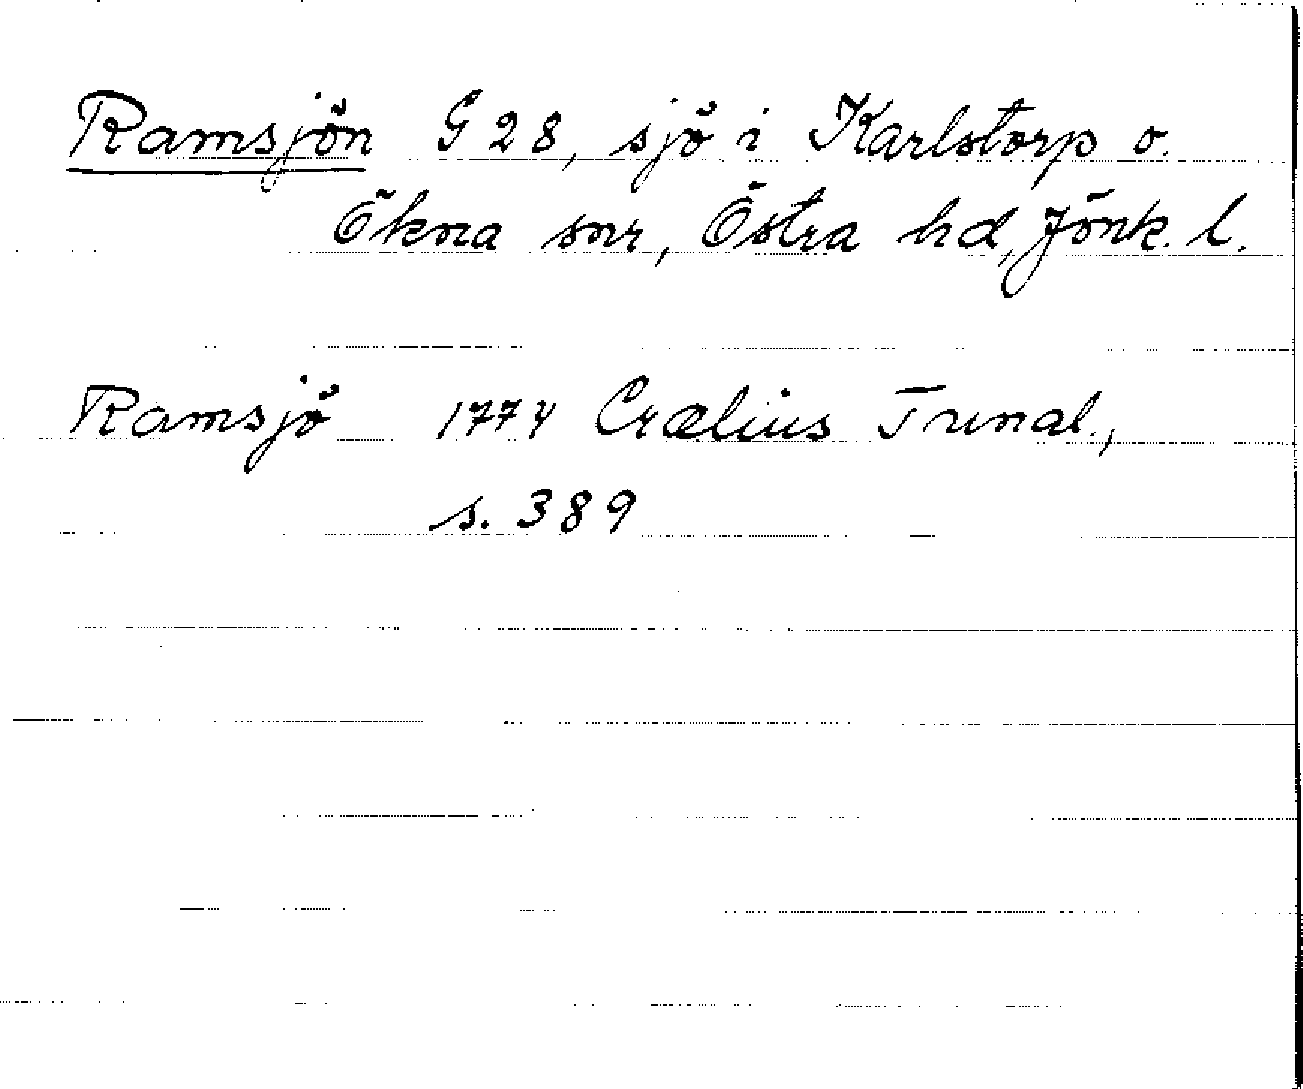 Ramsjön G 28, sjö i Karlstorp o.
Ökna snr, Östra hd, Jönk. l.
Ramsjö 1774 Crælius Tunal.,
s. 389